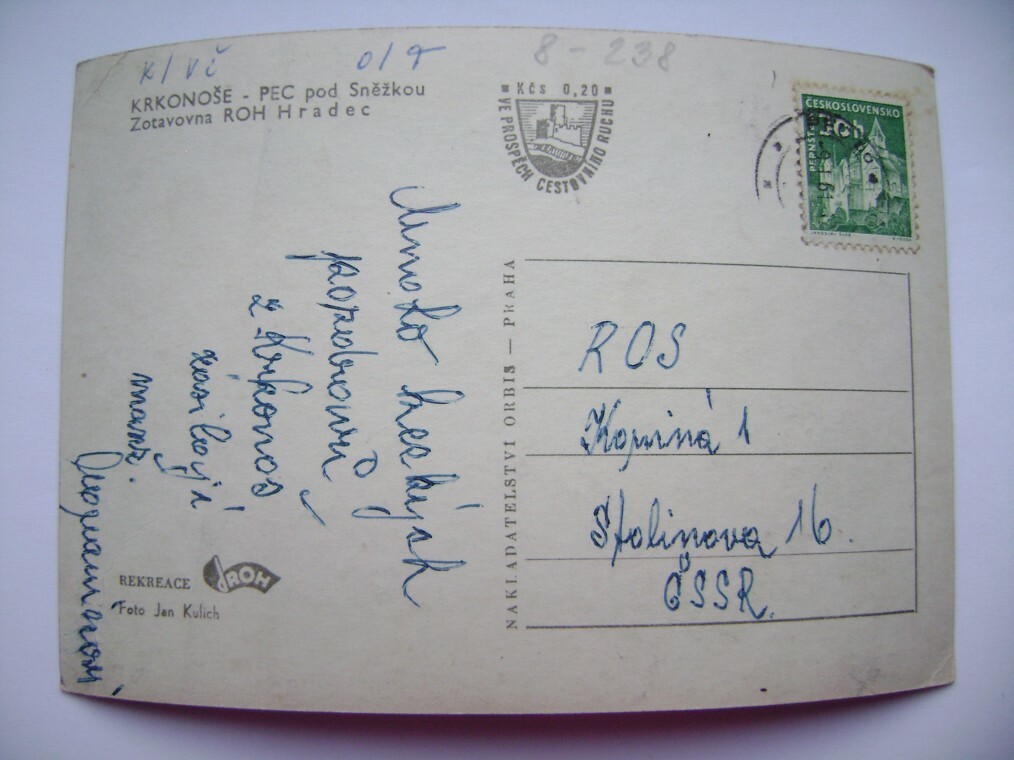 K/VČ
0/7
8-238
KRKONOŠE - PEC pod Sněžkou
Zotavovna ROH Hradec
KČS 0,20
VE PROSPĚCH CESTOVNÍHO RUCHU
ČESKOSLOVENSKO
Mnoho hezkých
pozdravů
z Krkonoš
zasílají
NAKLADATELSTVÍ ORBIS — PRAHA
ROS
1
Stalinova 16.
ČSSR.
REKREACE ROH
Foto Jan Kulich